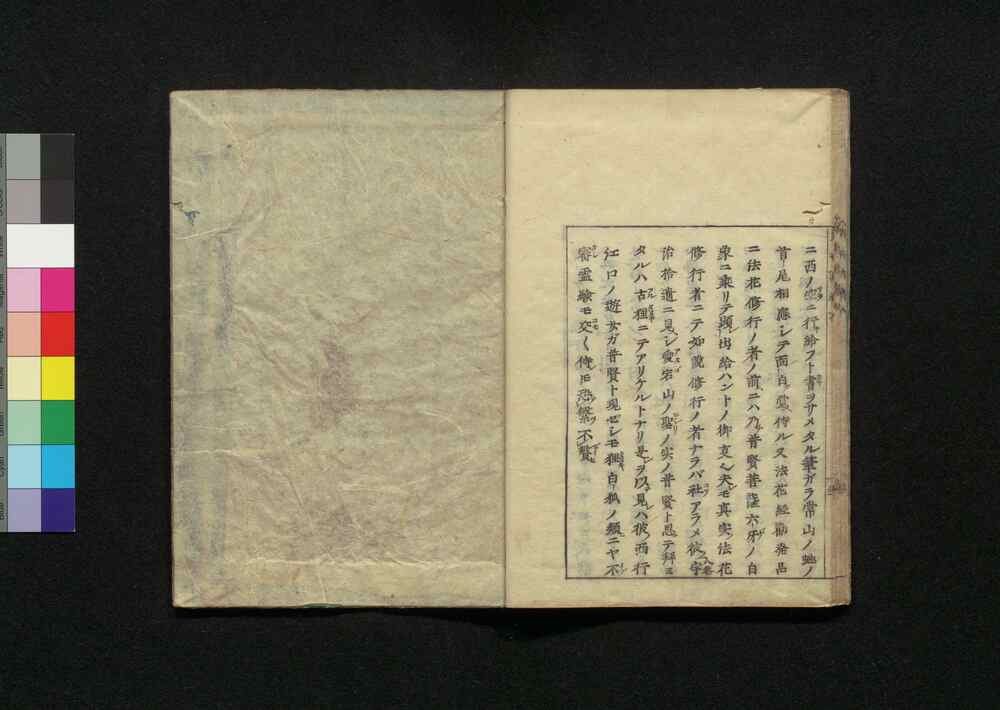 ニ西ノ空ニ行給フト書ヲサメタル筆ガラ常山ノ虵ノ
首尾相應シテ面白覚侍ル又法花経勧発品
ニ法花修行ノ者ノ前ニハ乃普賢菩薩六牙ノ白
象ニ乗リテ顕出給ハントノ御文ヘ夫モ真実法花
修行者ニテ如説修行ノ者ナラバ社アラメ彼宇
治拾遺ニ見シ愛宕山ノ聖ノ実ノ普賢ト思テ拝ミ
タルハ古狸ニテアリケルトナリ是ヲ以見ハ彼西行
江口ノ遊女ガ普賢ト現ゼシモ狸白狐ノ類ニヤ不
審霊験モ交く侍
不賢